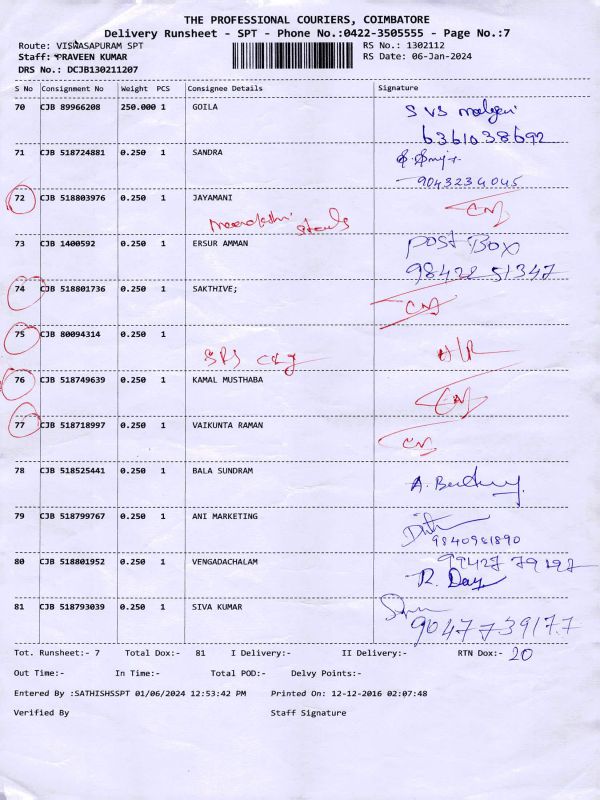 THE PROFESSIONAL COURIERS, COIMBATORE
Delivery Runsheet - SPT - Phone No.:0422-3505555 - Page No.:7
Route: VISWASAPURAM SPT RS No.: 1302112
Staff: PRAVEEN KUMAR RS Date: 06-Jan-2024
DRS No.: DCJB130211207
S No Consignment No Weight PCS Consignee Details Signature
70 CJB 89966208 250.000 1 GOILA S VS
6361038692
71 CJB 518724881 0.250 1 SANDRA
9043234045
72 CJB 518803976 0.250 1 JAYAMANI
73 CJB 1400592 0.250 1 ERSUR AMMAN POST BOX
98422 51347
74 CJB 518801736 0.250 1 SAKTHIVE;
75 CJB 80094314 0.250 1
SRS
76 CJB 518749639 0.250 1 KAMAL MUSTHABA
77 CJB 518718997 0.250 1 VAIKUNTA RAMAN
78 CJB 518525441 0.250 1 BALA SUNDRAM
79 CJB 518799767 0.250 1 ANI MARKETING
9840981890
80 CJB 518801952 0.250 1 VENGADACHALAM
81 CJB 518793039 0.250 1 SIVA KUMAR
9047739177
Tot. Runsheet:- 7 Total Dox:- 81 I Delivery:- II Delivery:- RTN Dox:- 20
Out Time:- In Time:- Total POD:- Delvy Points:-
Entered By :SATHISHSSPT 01/06/2024 12:53:42 PM Printed On: 12-12-2016 02:07:48
Verified By Staff Signature